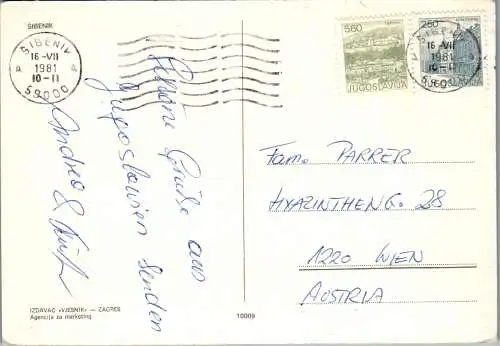 ŠIBENIK
ŠIBENIK
16-VII
1981
10-11
59000
5.60
JUGOSLAVIJA
2.50
JUGOSLAVIJA
16-VII
1981
10-11
Schöne Grüße aus
Jugoslawien senden
Andrea &
Fam. PARRER
HYAZINTHENG. 28
1220 WIEN
AUSTRIA
IZDAVAČ «VJESNIK» — ZAGREB
Agencija za marketing
10009